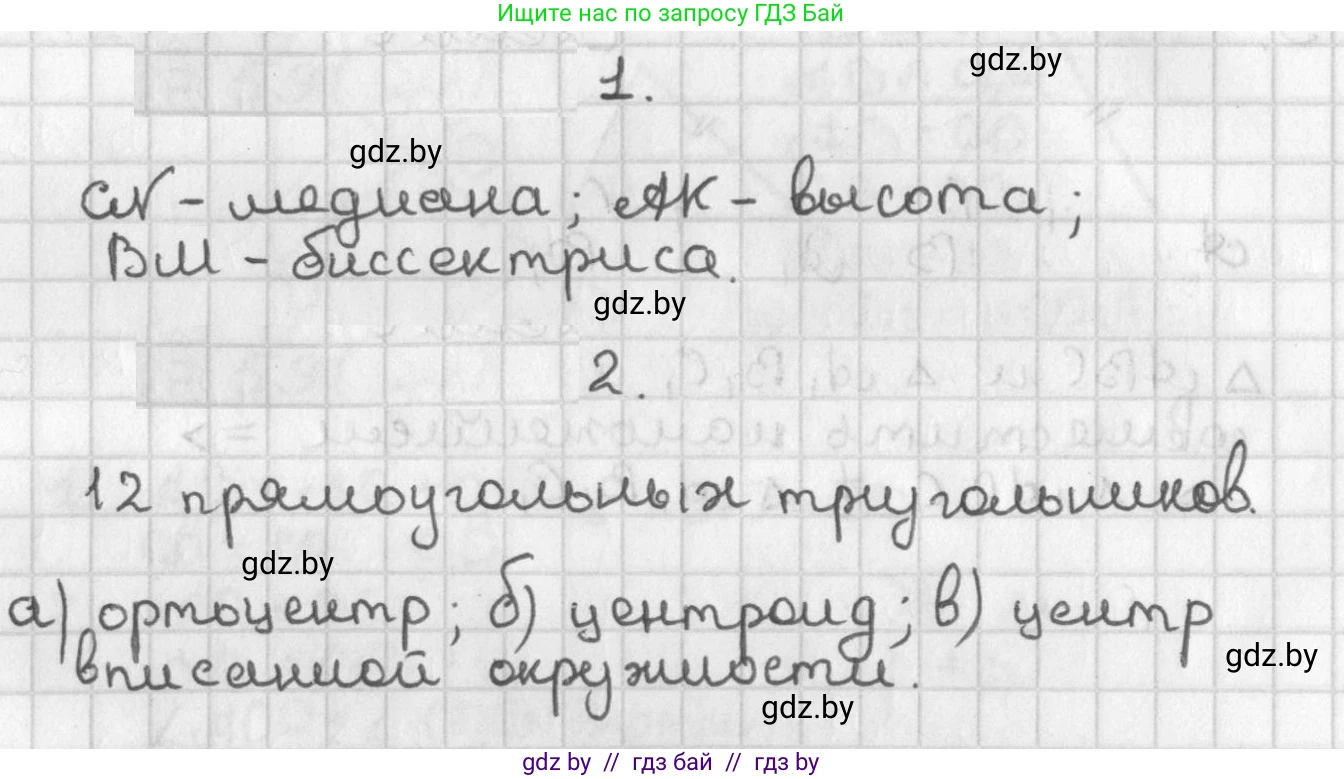 Ищите нас по запросу ГДЗ Бай
gdz.by
1.
gdz.by
CN - медиана; AK - высота;
BM - биссектриса.
gdz.by
2.
12 прямоугольных триугольников.
gdz.by
а) ортоцентр; б) центроид; в) центр
вписанной окружности.
gdz.by
gdz.by
gdz by // гдз бай // гдз by